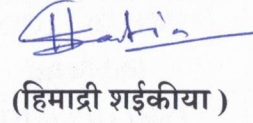 (हिमाद्री शईकीया )